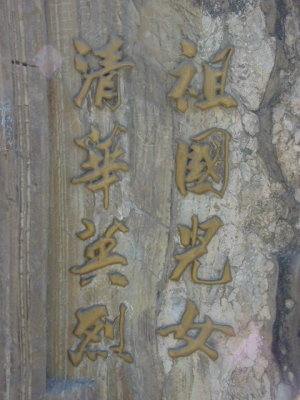 祖國兒女
清華英烈